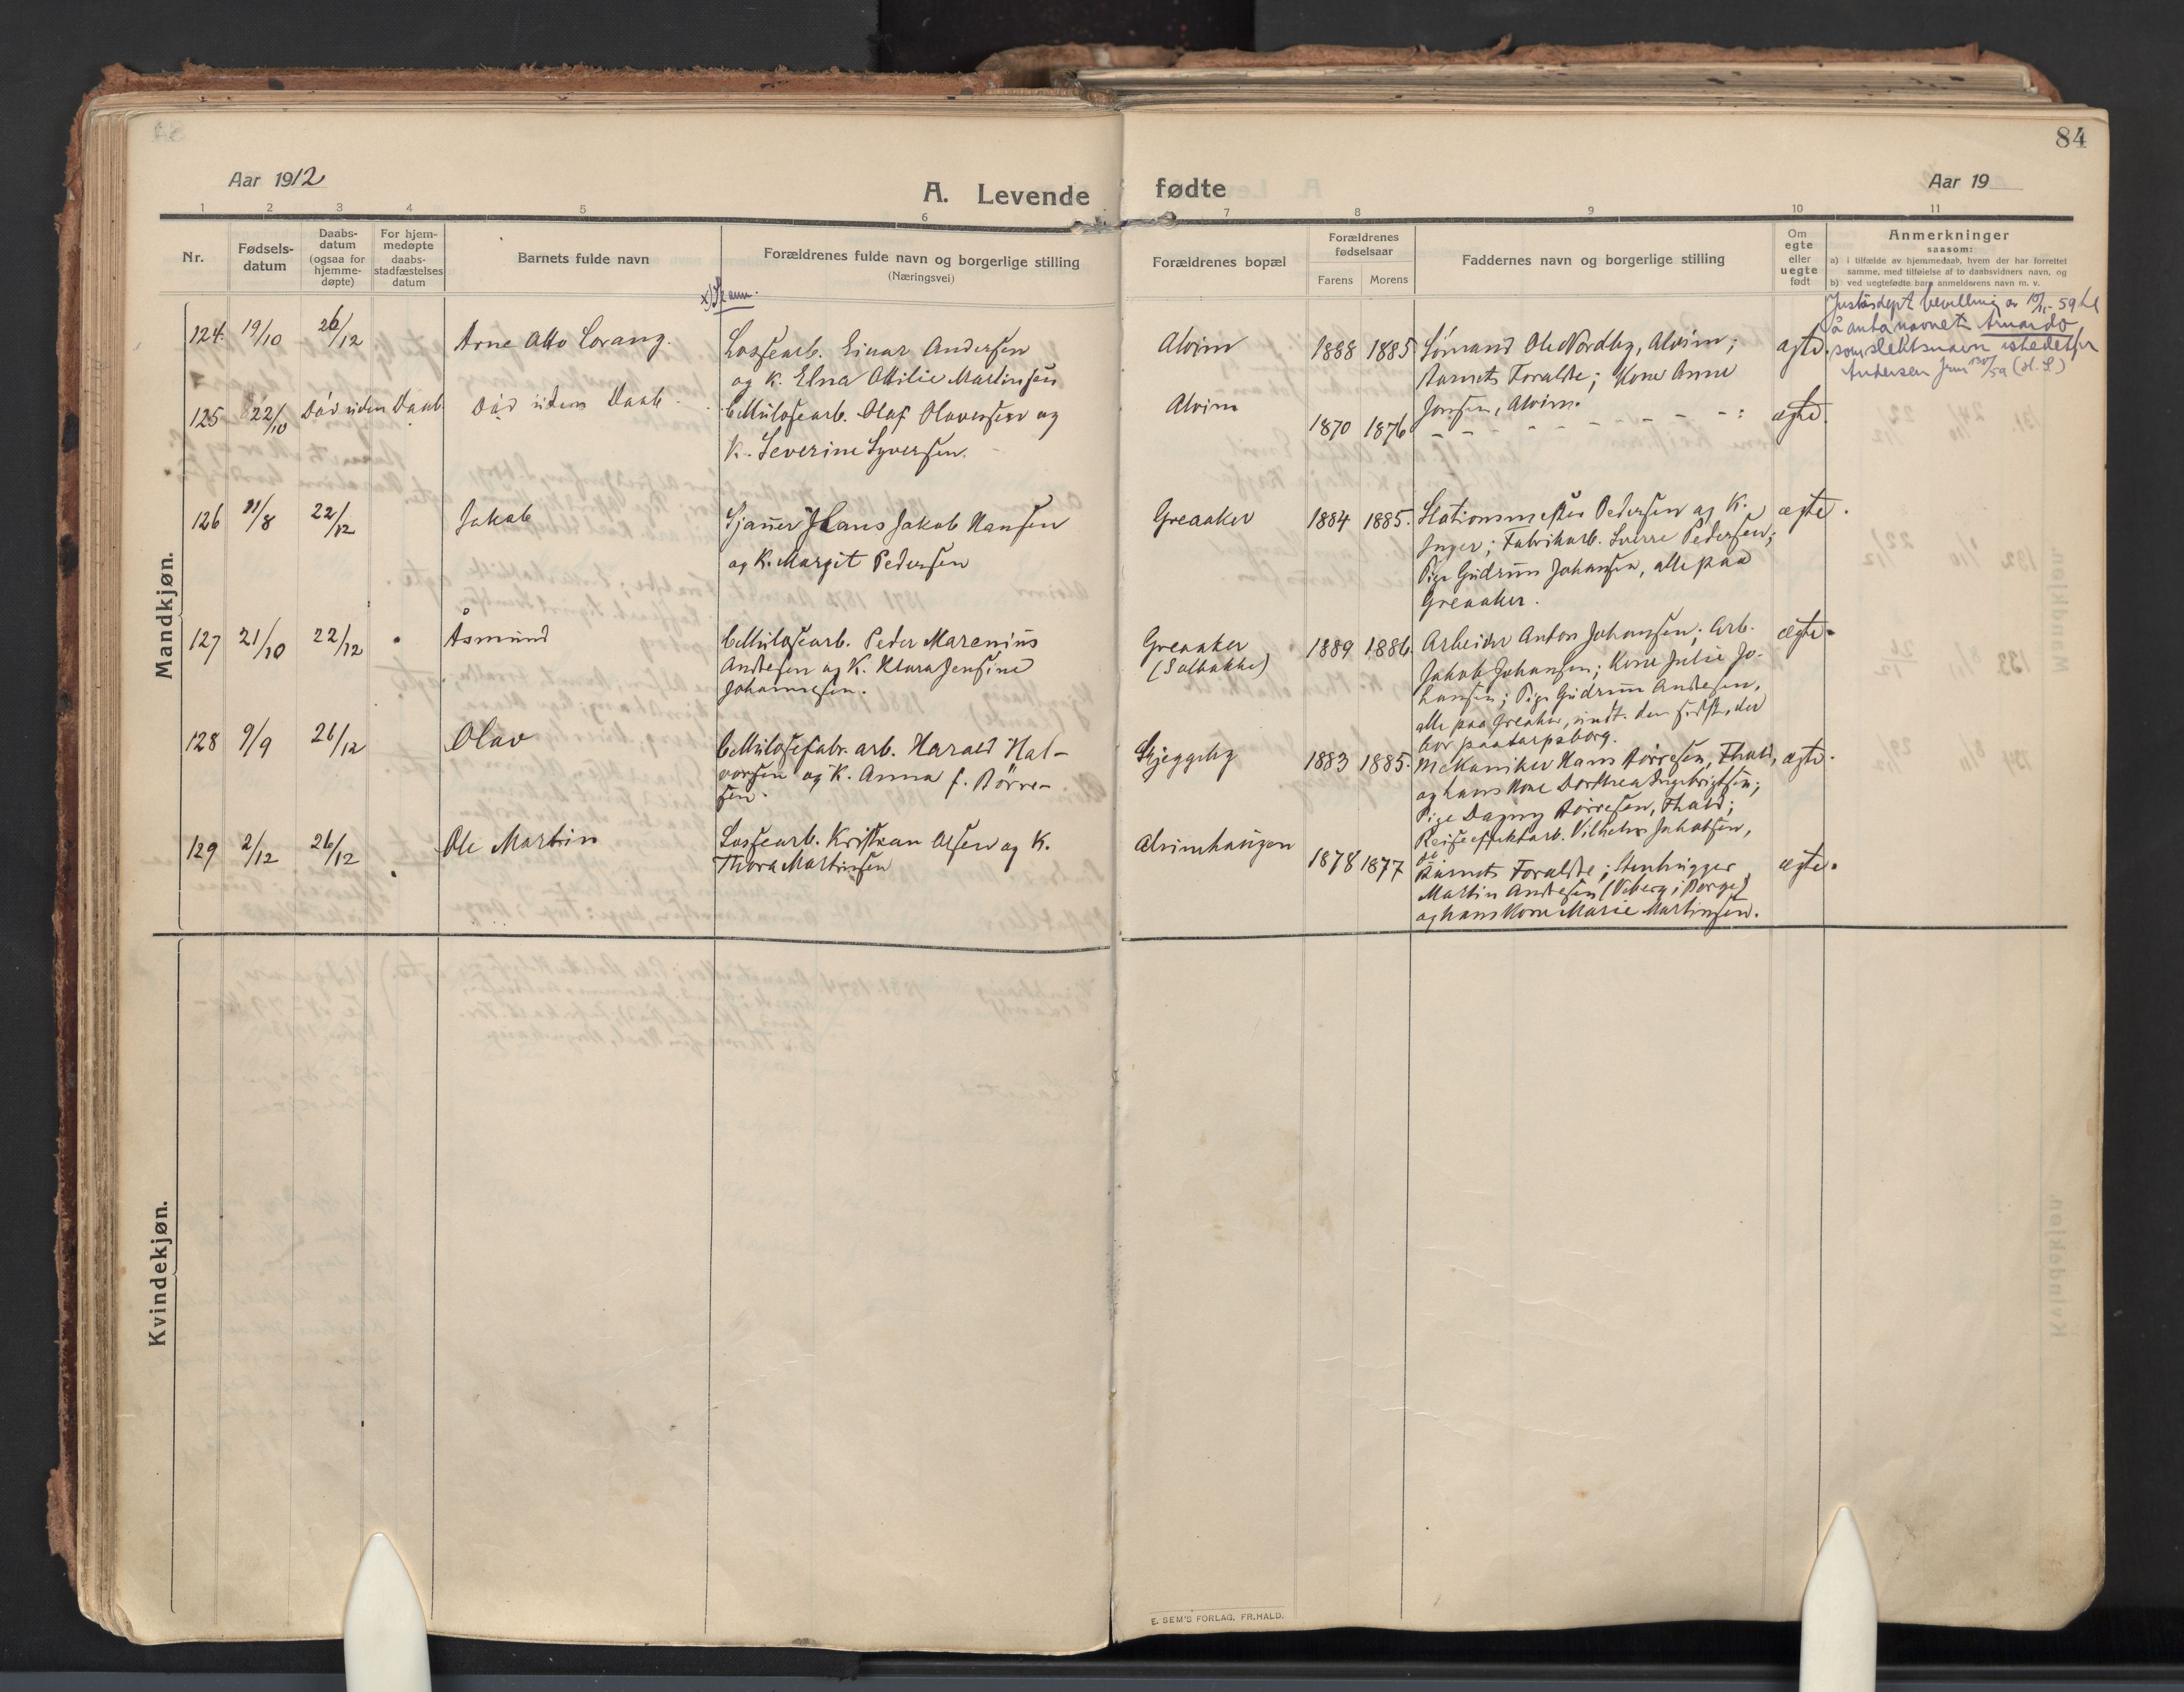 84
Aar 1912
A. Levende fødte
Aar 19
1 2 3 4 5 6 7 8 9 10 11
Nr.
Fødsels-
datum
Daabs-
datum
(ogsaa for
hjemme-
døpte)
For hjem-
medøpte
daabs-
stadfæstelses
datum
Barnets fulde navn
Forældrenes fulde navn og borgerlige stilling
(Næringsvei)
Forældrenes bopæl
Forældrenes
fødselsaar
Farens Morens
Faddernes navn og borgerlige stilling
Om
egte
eller
uegte
født
Anmerkninger
saasom:
a) i tilfælde av hjemmedaab, hvem der har forrettet
samme, med tilføielse af to daabsvidners navn, og
b) ved uegtefødte barn anmelderens navn m. v.
Mandkjøn.
124. 19/10 26/12
Arne Otto Lorang.
Lossearb. Einar Andersen
og K. Elna Ottilie Martinsen
Alvim
1888 1885
Sømand Ole Nordby, Alvim;
Barnets Forældre; Kone Anne
Jonsen, Alvim.
ægte.
Justisdept bevilling av
å anta navnet Arnardo
som slektsnavn istedetfor
Andersen
125 22/10 Død uden Daab
Død uden Daab.
Cellulosearb. Olaf Olavessen og
K. Severine Syversen.
Alvim
1870 1876
- - - - - - - - :
ægte.
126 11/8 22/12
Jakob
Sjauer Hans Jakob Hansen
og K. Margit Pedersen
Greaaker
1884 1885.
Stationsmester Pedersen og K.
Inger; Fabrikarb. Sverre Pedersen;
Pige Gudrun Johansen, alle paa
Greaaker.
ægte.
127 21/10 22/12
Åsmund
Cellulosearb. Peder Marenius
Andresen og K. Klara Jensine
Johannesen.
Greaaker
(Solbakke)
1889 1886
Arbeider Anton Johansen; Arb.
Jakob Johansen; Kone Julie Jo-
hansen; Pige Gudrun Andresen,
alle paa Greaker, undt. den sidste, der
bor paa Sarpsborg.
ægte.
128 9/9 26/12
Olav
Cellulosefabr. arb. Harald Hal-
vorsen og K. Anna f. Børre-
sen.
Skjeggeby
1883 1885.
Mekaniker Hans Børresen, Fhald,
og hans Kone Dorthea Ingebrigtsen;
Pige Dagny Børresen, Fhald;
Reiseeffektarb. Vilhelm Jakobsen,
ægte.
129 2/12 26/12
Ole Martin
Lossearb. Kristian Olsen og K.
Thora Martinsen
Alvimhaugen
1878 1877
Barnets Forældre; Stenhugger
Martin Andresen (Viberg i Borge)
og hans Kone Marie Martinsen.
ægte.
Kvindekjøn.
E. SEM'S FORLAG, FR.HALD.